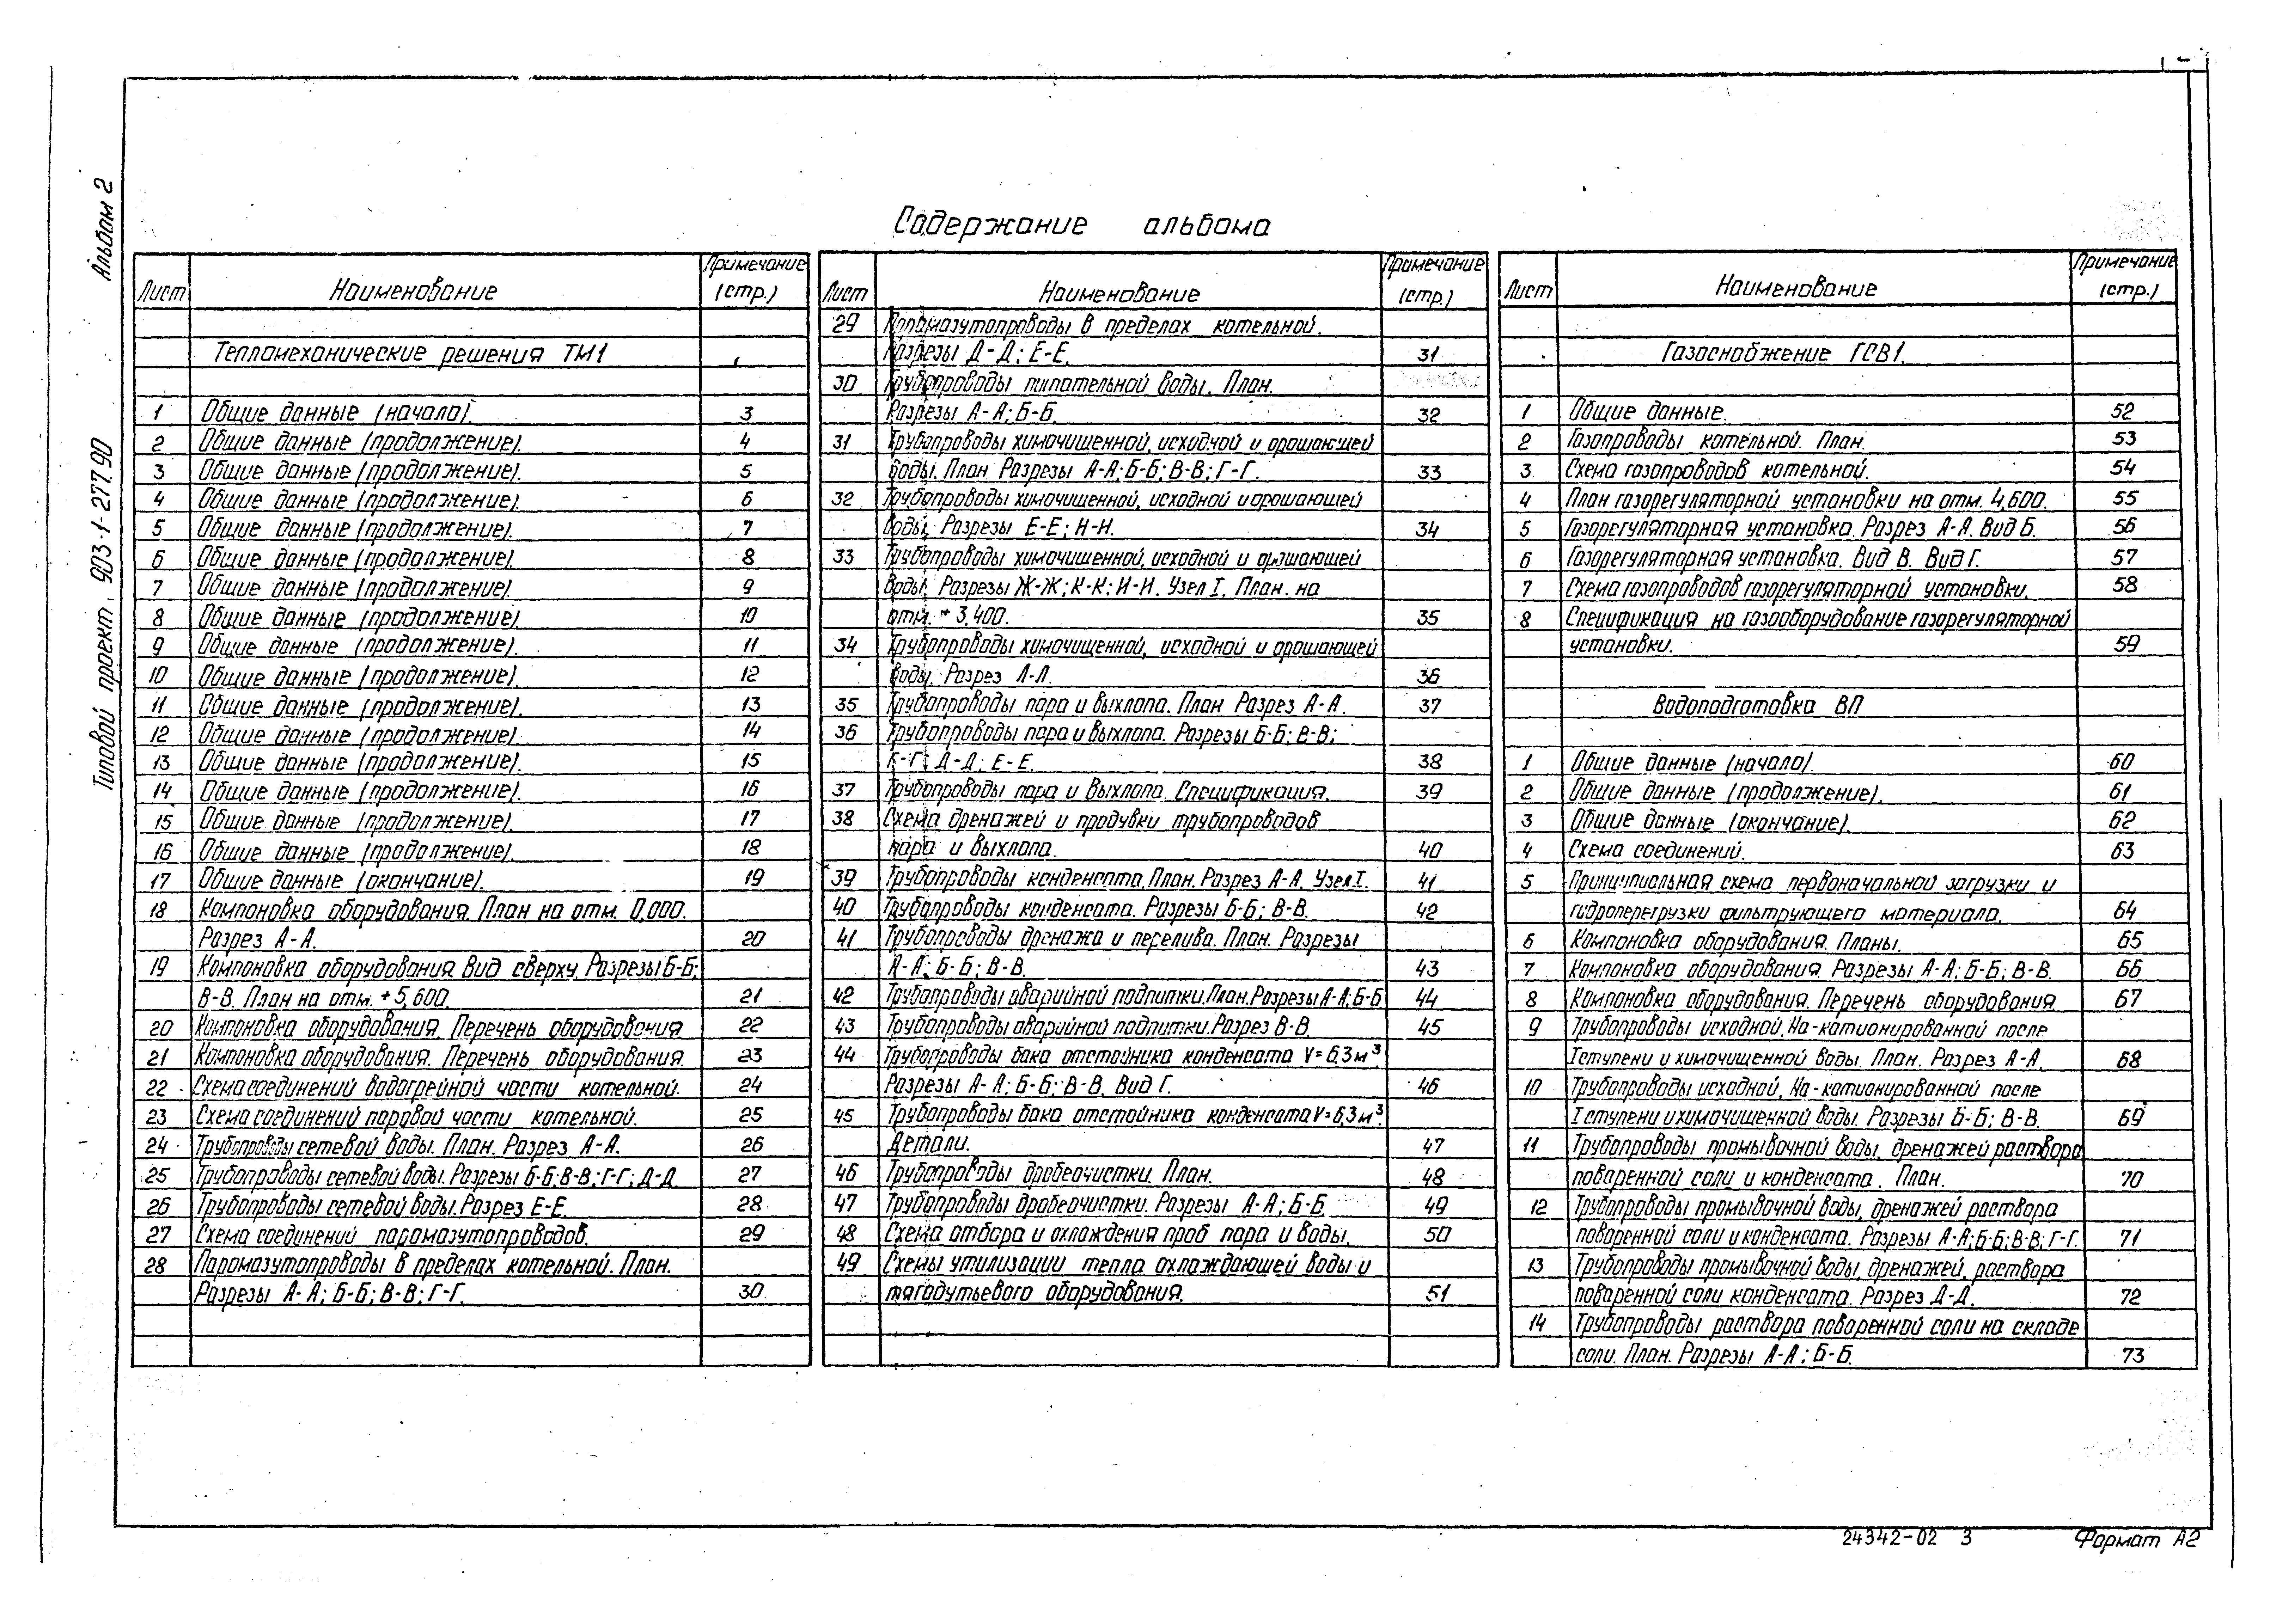 Альбом 2
Типовой проект 903-1-277.90
Содержание альбома
Лист Наименование Примечание (стр.)
Тепломеханические решения ТМ1
1 Общие данные (начало). 3
2 Общие данные (продолжение). 4
3 Общие данные (продолжение). 5
4 Общие данные (продолжение). 6
5 Общие данные (продолжение). 7
6 Общие данные (продолжение). 8
7 Общие данные (продолжение). 9
8 Общие данные (продолжение). 10
9 Общие данные (продолжение). 11
10 Общие данные (продолжение). 12
11 Общие данные (продолжение). 13
12 Общие данные (продолжение). 14
13 Общие данные (продолжение). 15
14 Общие данные (продолжение). 16
15 Общие данные (продолжение). 17
16 Общие данные (продолжение). 18
17 Общие данные (окончание). 19
18 Компоновка оборудования. План на отм. 0,000.
Разрез А-А. 20
19 Компоновка оборудования Вид сверху. Разрезы Б-Б;
В-В. План на отм. +5,600. 21
20 Компоновка оборудования. Перечень оборудования 22
21 Компоновка оборудования. Перечень оборудования. 23
22 Схема соединений водогрейной части котельной. 24
23 Схема соединений паровой части котельной. 25
24 Трубопроводы сетевой воды. План. Разрез А-А. 26
25 Трубопроводы сетевой воды. Разрезы Б-Б; В-В; Г-Г; Д-Д. 27
26 Трубопроводы сетевой воды. Разрез Е-Е. 28
27 Схема соединений паромазутопроводов. 29
28 Паромазутопроводы в пределах котельной. План.
Разрезы А-А; Б-Б; В-В; Г-Г. 30
Лист Наименование Примечание (стр.)
29 Паромазутопроводы в пределах котельной.
Разрезы Д-Д; Е-Е. 31
30 Трубопроводы питательной воды. План.
Разрезы А-А; Б-Б. 32
31 Трубопроводы химочищенной, исходной и орошающей
воды. План. Разрезы А-А; Б-Б; В-В; Г-Г. 33
32 Трубопроводы химочищенной, исходной и орошающей
воды. Разрезы Е-Е; Н-Н. 34
33 Трубопроводы химочищенной, исходной и орошающей
воды. Разрезы Ж-Ж; К-К; И-И. Узел I. План. на
отм. + 3,400. 35
34 Трубопроводы химочищенной, исходной и орошающей
воды. Разрез Л-Л. 36
35 Трубопроводы пара и выхлопа. План Разрез А-А. 37
36 Трубопроводы пара и выхлопа. Разрезы Б-Б; В-В;
Г-Г; Д-Д; Е-Е. 38
37 Трубопроводы пара и выхлопа. Спецификация. 39
38 Схема дренажей и продувки трубопроводов
пара и выхлопа. 40
39 Трубопроводы конденсата. План. Разрез А-А. Узел I. 41
40 Трубопроводы конденсата. Разрезы Б-Б; В-В. 42
41 Трубопроводы дренажа и перелива. План. Разрезы
А-А; Б-Б; В-В. 43
42 Трубопроводы аварийной подпитки. План. Разрезы А-А; Б-Б 44
43 Трубопроводы аварийной подпитки. Разрез В-В. 45
44 Трубопроводы бака отстойника конденсата V=6,3м³.
Разрезы А-А; Б-Б; В-В. Вид Г. 46
45 Трубопроводы бака отстойника конденсата V=6,3м³.
Детали. 47
46 Трубопроводы дробеочистки. План. 48
47 Трубопроводы дробеочистки. Разрезы А-А; Б-Б 49
48 Схема отбора и охлаждения проб пара и воды. 50
49 Схемы утилизации тепла охлаждающей воды и
тягодутьевого оборудования. 51
Лист Наименование Примечание (стр.)
Газоснабжение ГСВ1.
1 Общие данные. 52
2 Газопроводы котельной. План. 53
3 Схема газопроводов котельной. 54
4 План газорегуляторной установки на отм. 4,600. 55
5 Газорегуляторная установка. Разрез А-А. Вид Б. 56
6 Газорегуляторная установка. Вид В. Вид Г. 57
7 Схема газопроводов газорегуляторной установки. 58
8 Спецификация на газооборудование газорегуляторной
установки. 59
Водоподготовка ВП
1 Общие данные (начало). 60
2 Общие данные (продолжение). 61
3 Общие данные (окончание). 62
4 Схема соединений. 63
5 Принципиальная схема первоначальной загрузки и
гидроперегрузки фильтрующего материала. 64
6 Компоновка оборудования. Планы. 65
7 Компоновка оборудования. Разрезы А-А; Б-Б; В-В. 66
8 Компоновка оборудования. Перечень оборудования. 67
9 Трубопроводы исходной, Na-катионированной после
I ступени и химочищенной воды. План. Разрез А-А. 68
10 Трубопроводы исходной, Na-катионированной после
I ступени и химочищенной воды. Разрезы Б-Б; В-В. 69
11 Трубопроводы промывочной воды, дренажей раствора
поваренной соли и конденсата. План. 70
12 Трубопроводы промывочной воды, дренажей раствора
поваренной соли и конденсата. Разрезы А-А; Б-Б; В-В; Г-Г. 71
13 Трубопроводы промывочной воды, дренажей, раствора
поваренной соли конденсата. Разрез Д-Д. 72
14 Трубопроводы раствора поваренной соли на складе
соли. План. Разрезы А-А; Б-Б. 73
24342-02 3
Формат А2